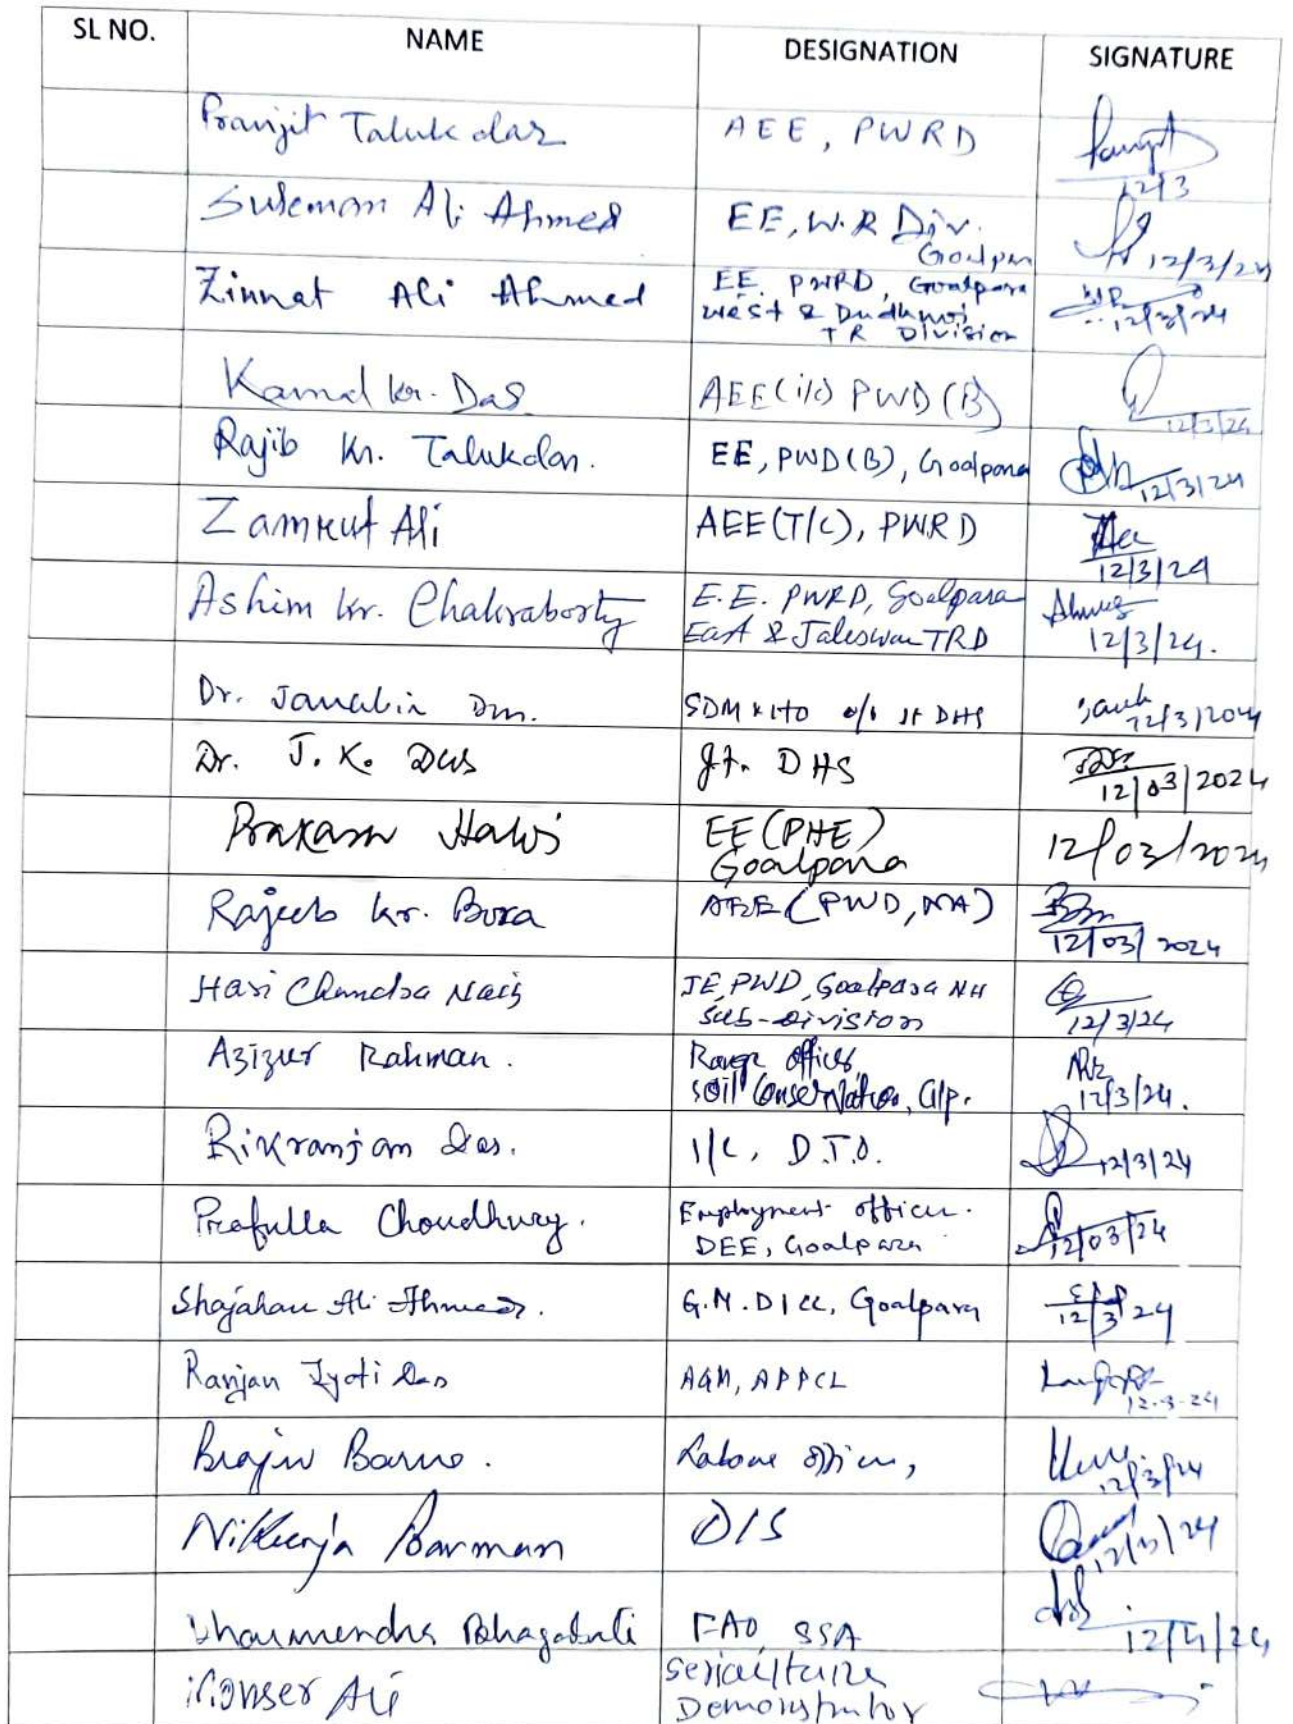 SL NO. NAME DESIGNATION SIGNATURE
Pranjit Talukdar AEE, PWRD
12/3
Suleman Ali Ahmed EE, W.R Div.
Goalpara 12/3/24
Zinnat Ali Ahmed EE. PWRD, Goalpara
West & Dudhnoi
TR Division 12/3/24
Kamal kr. Das AEE (i/c) PWD (B) 12/3/24
Rajib Kr. Talukdar. EE, PWD (B), Goalpara 12/3/24
Zamrut Ali AEE (T/C), PWRD
12/3/24
Ashim kr. Chakraborty E.E. PWRD, Goalpara
East & Jaleswar TRD 12/3/24.
Dr. SDM & HO o/o Jt DHS 12/3/2024
Dr. J. K. Das Jt. DHS
12/03/2024
Prakash EE (PHE)
Goalpara 12/03/2024
Rajeeb kr. Bora AEE (PWD, NH)
12/03/2024
Hari Chandra JE, PWD, Goalpara NH
Sub-Division 12/3/24
Azizur Rahman. Range officer
Soil Conservation, Glp. 12/3/24.
Rikranjan Das. I/C, D.T.O. 12/3/24
Prafulla Choudhury. Employment officer.
DEE, Goalpara 12/03/24
Shajahan Ali Ahmed. G.M. DICC, Goalpara
12/3/24
Ranjan Jyoti Das AGM, APDCL
12.3.24
Labour officer,
12/3/24
Nikunja Barman DIS
12/3/24
Bhagabati FAO, SSA
Monser Ali Sericulture
Demonstrator